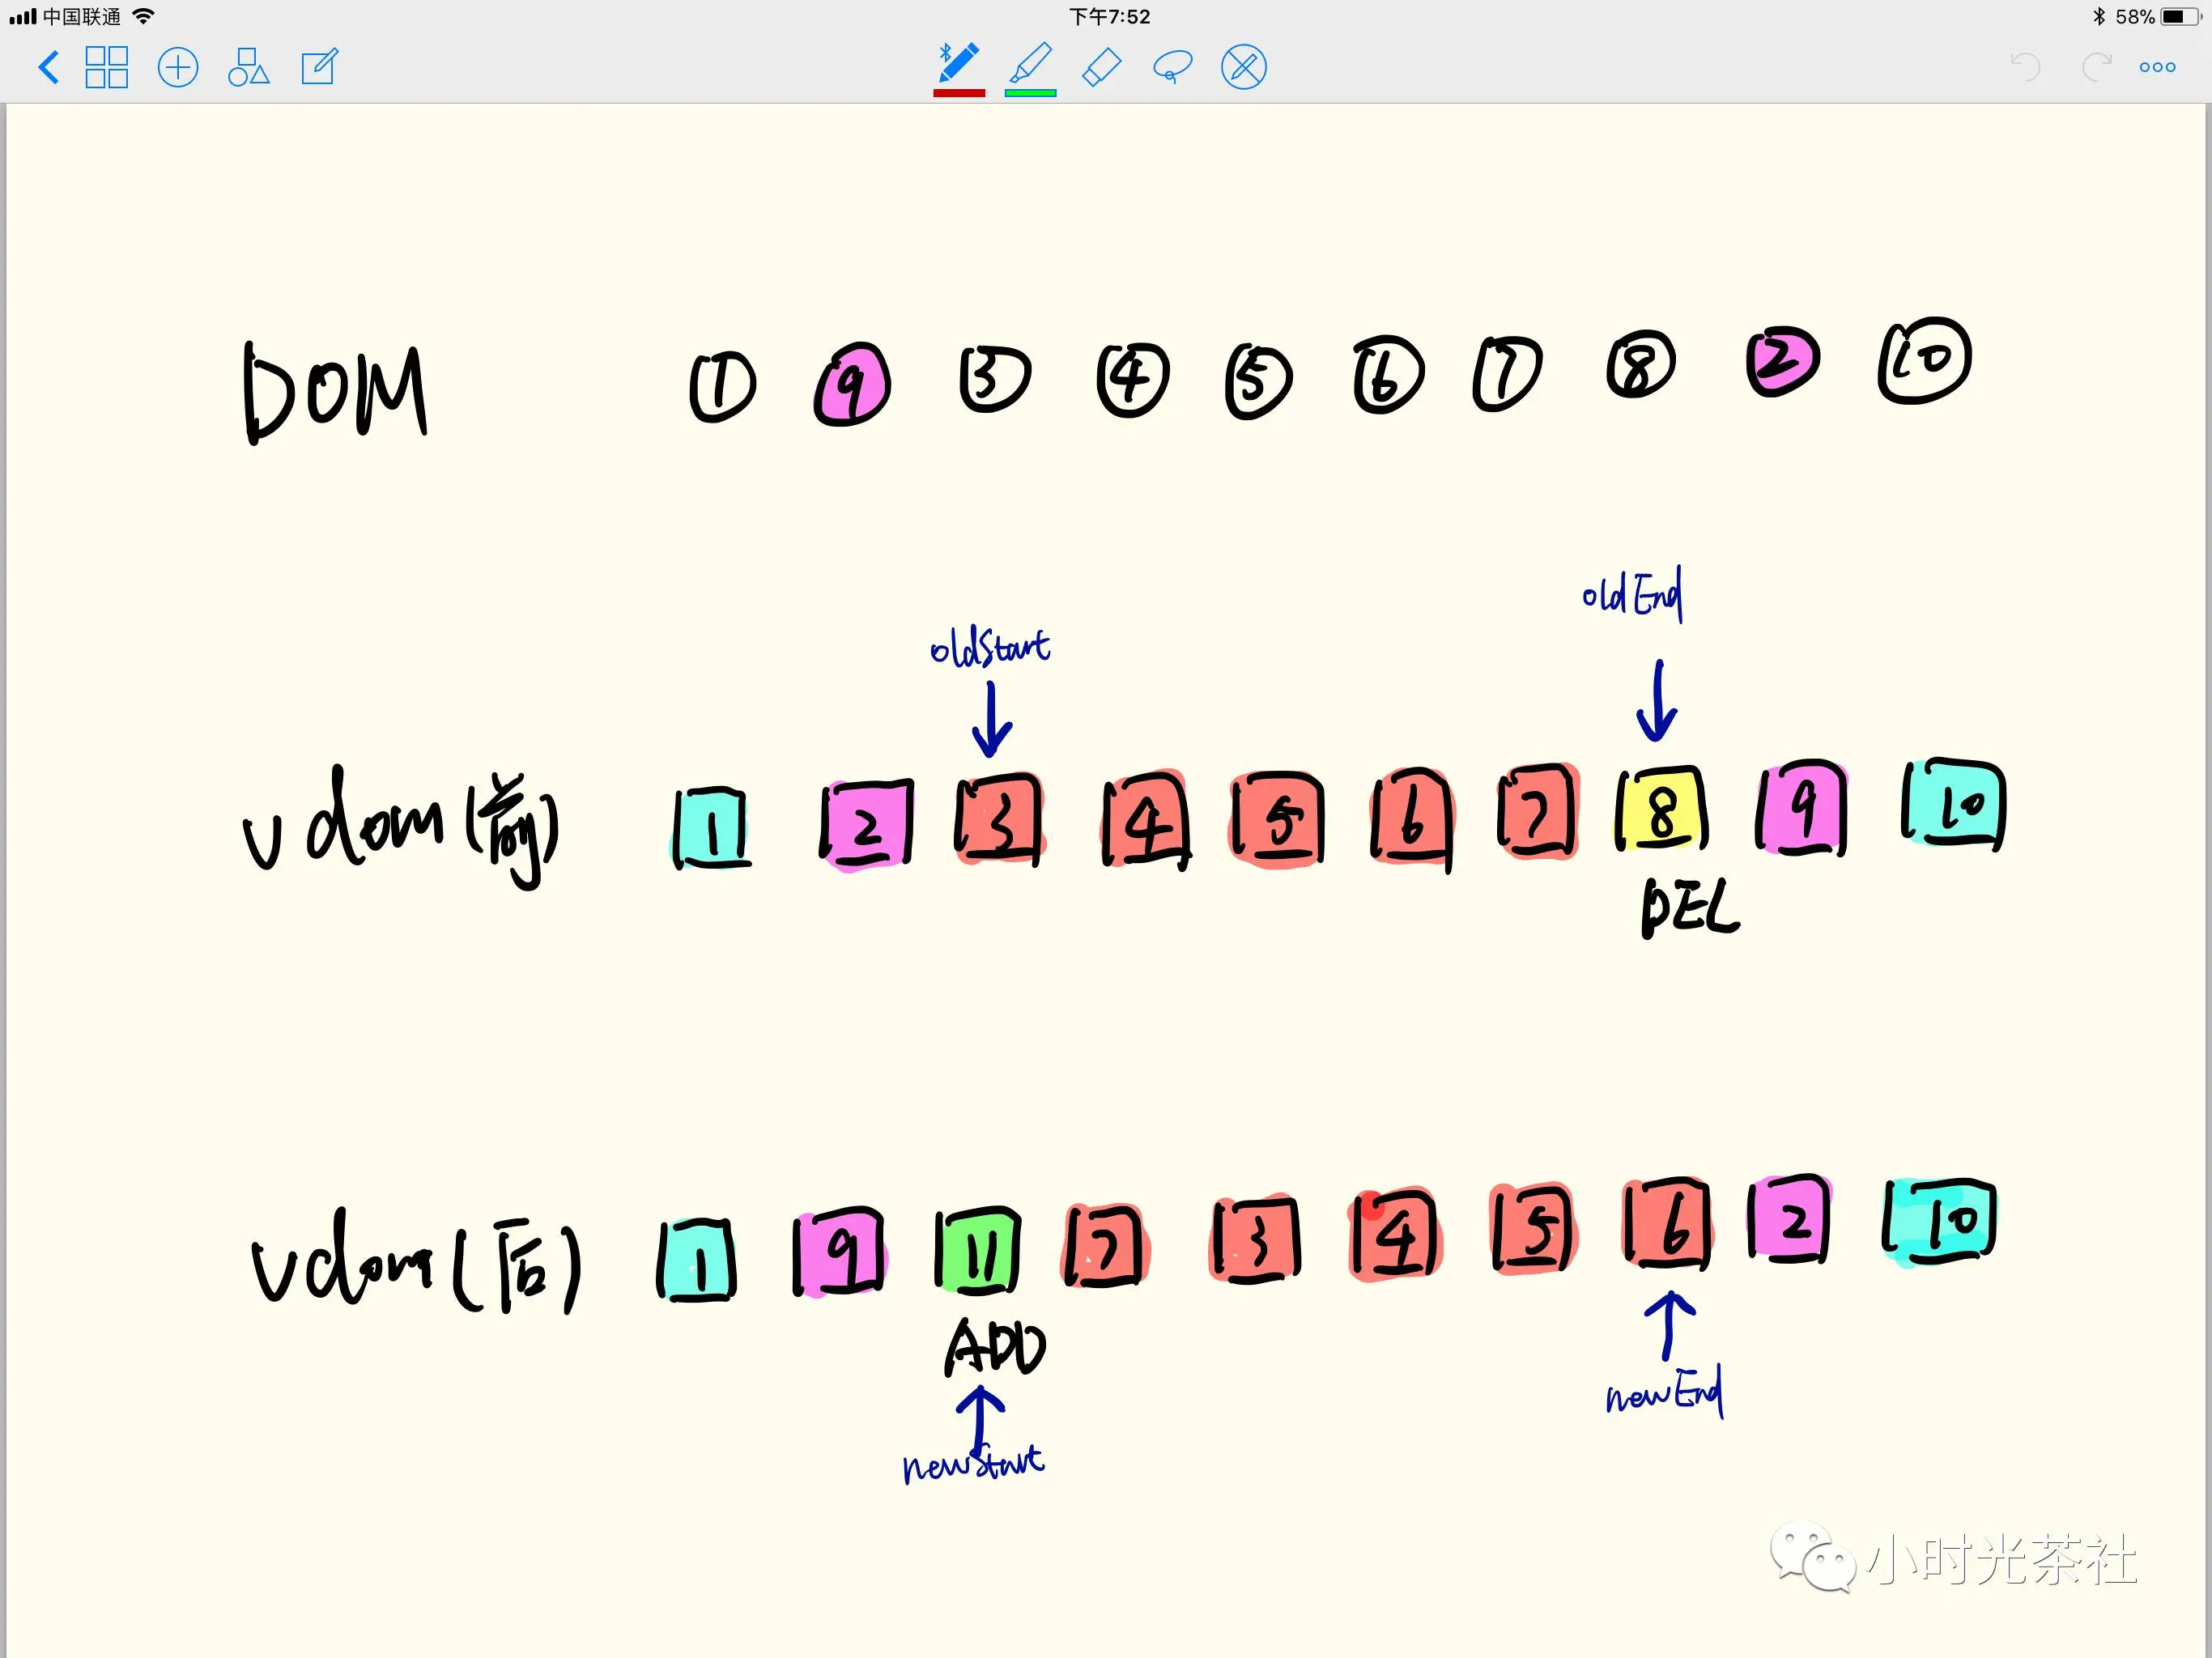 中国联通 下午7:52 58%
DOM 1 9 3 4 5 6 7 8 2 10
oldStart oldEnd
vdom(前) 1 2 3 4 5 6 7 8 9 10
DEL
vdom(后) 1 9 11 7 3 4 5 6 2 10
ADD
newStart newEnd
小时光茶社